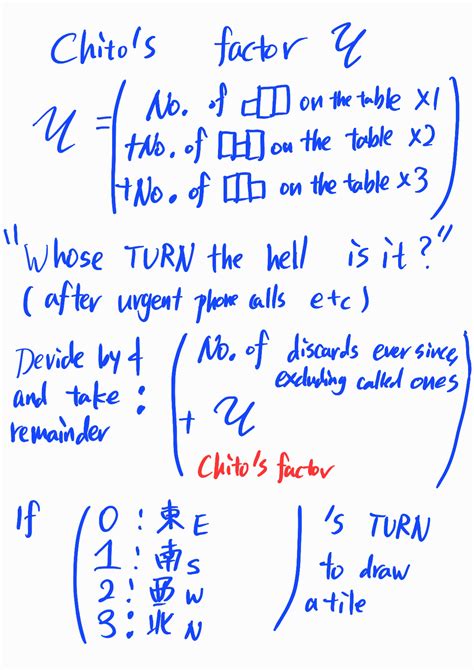 Chito's factor 𝓤
𝓤 = ( No. of on the table ×1
+No. of on the table ×2
+No. of on the table ×3 )
"Whose TURN the hell is it?"
(after urgent phone calls etc)
Devide by 4
and take :
remainder
( No. of discards ever since,
excluding called ones
+ 𝓤
Chito's factor )
If
( 0 : 東 E
1 : 南 S
2 : 西 W
3 : 北 N )
's TURN
to draw
a tile